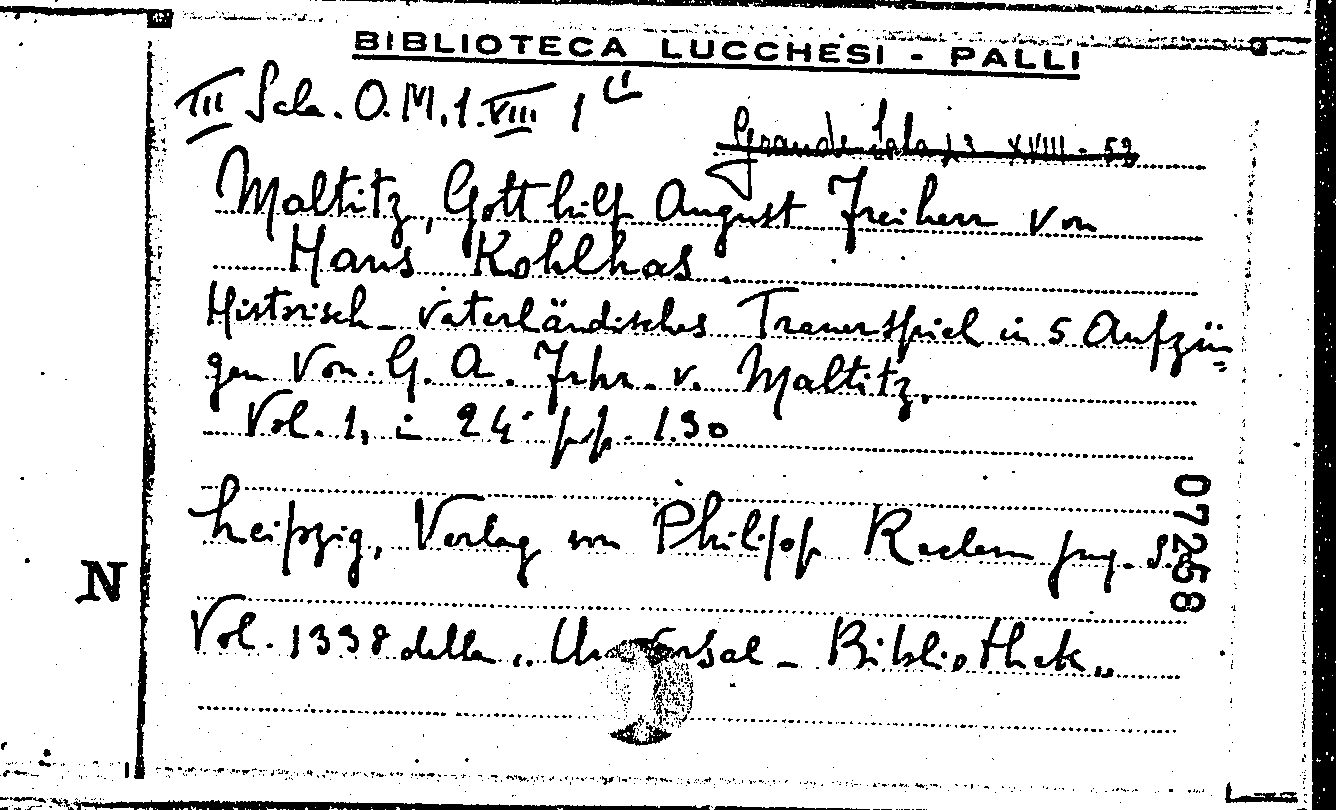 BIBLIOTECA LUCCHESI - PALLI
III Sala. O.M.1.VIII 1
Grande Sala 23 - XVIII - 52
Maltitz, Gotthilf August Freiherr von
Hans Kohlhas.
Historisch-vaterländisches Trauerspiel in 5 Aufzü=
gen von G. A. Frhr. v. Maltitz.
Vol. 1, in 24° pp. 1.90
Leipzig, Verlag von Philipp Reclam jun. S.
07258
N
Vol. 1338 della „Universal-Bibliothek„